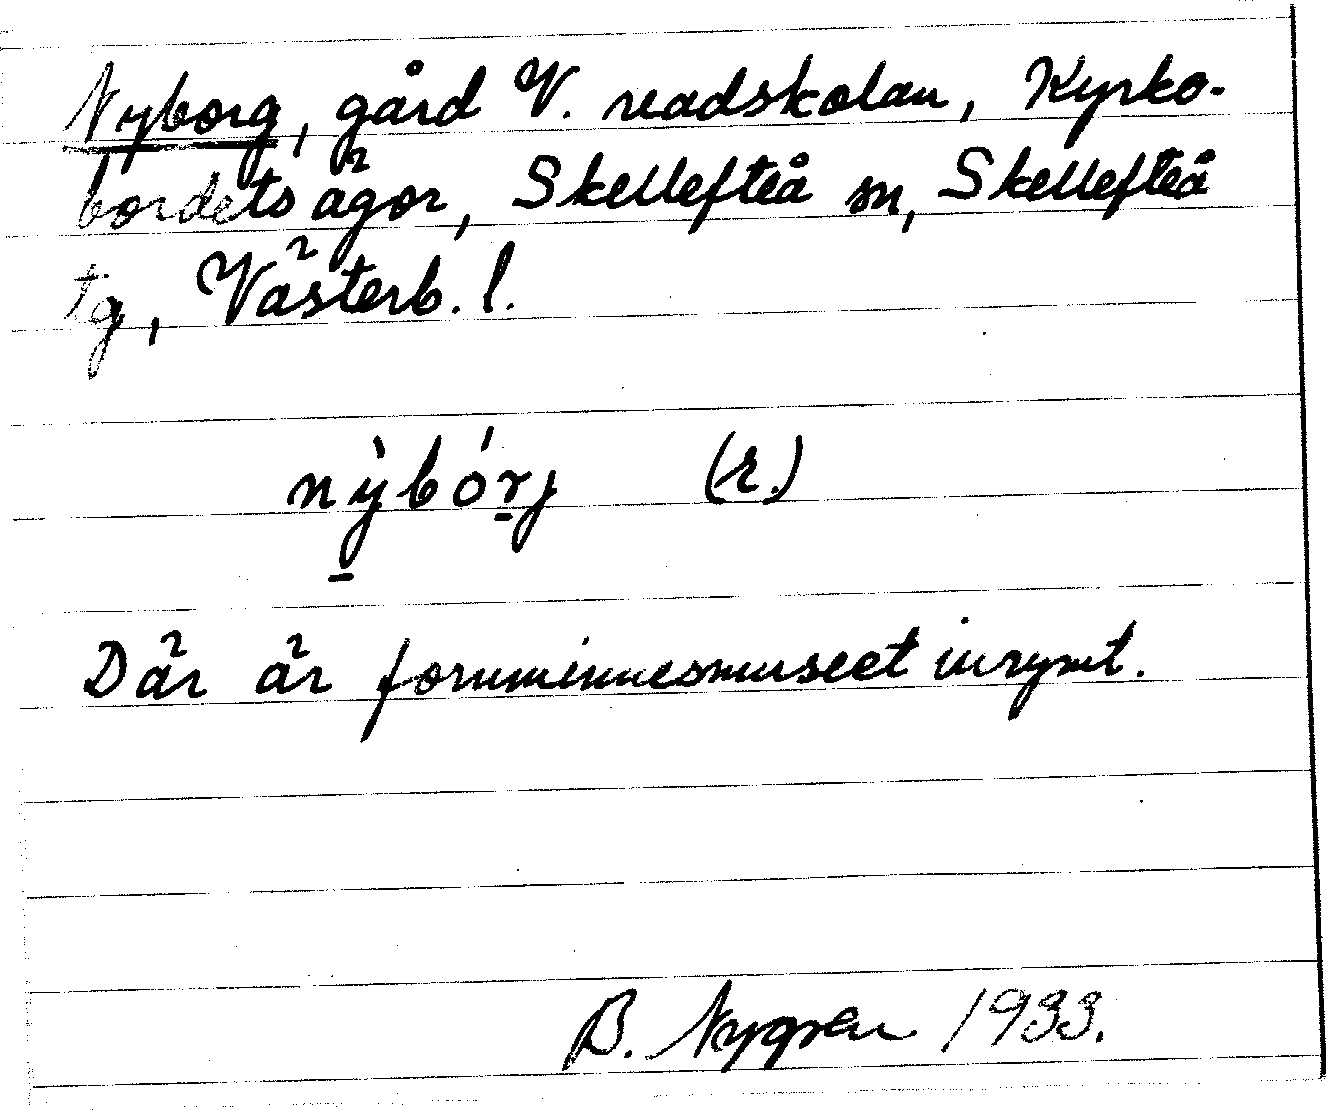 Nyborg, gård V. readskolan, Kyrko-
bordets ägor, Skellefteå sn, Skellefteå
tg, Västerb. l.
nỳ̱bór̲j (r.)
Där är fornminnesmuseet inrymt.
B. Nygren 1933.